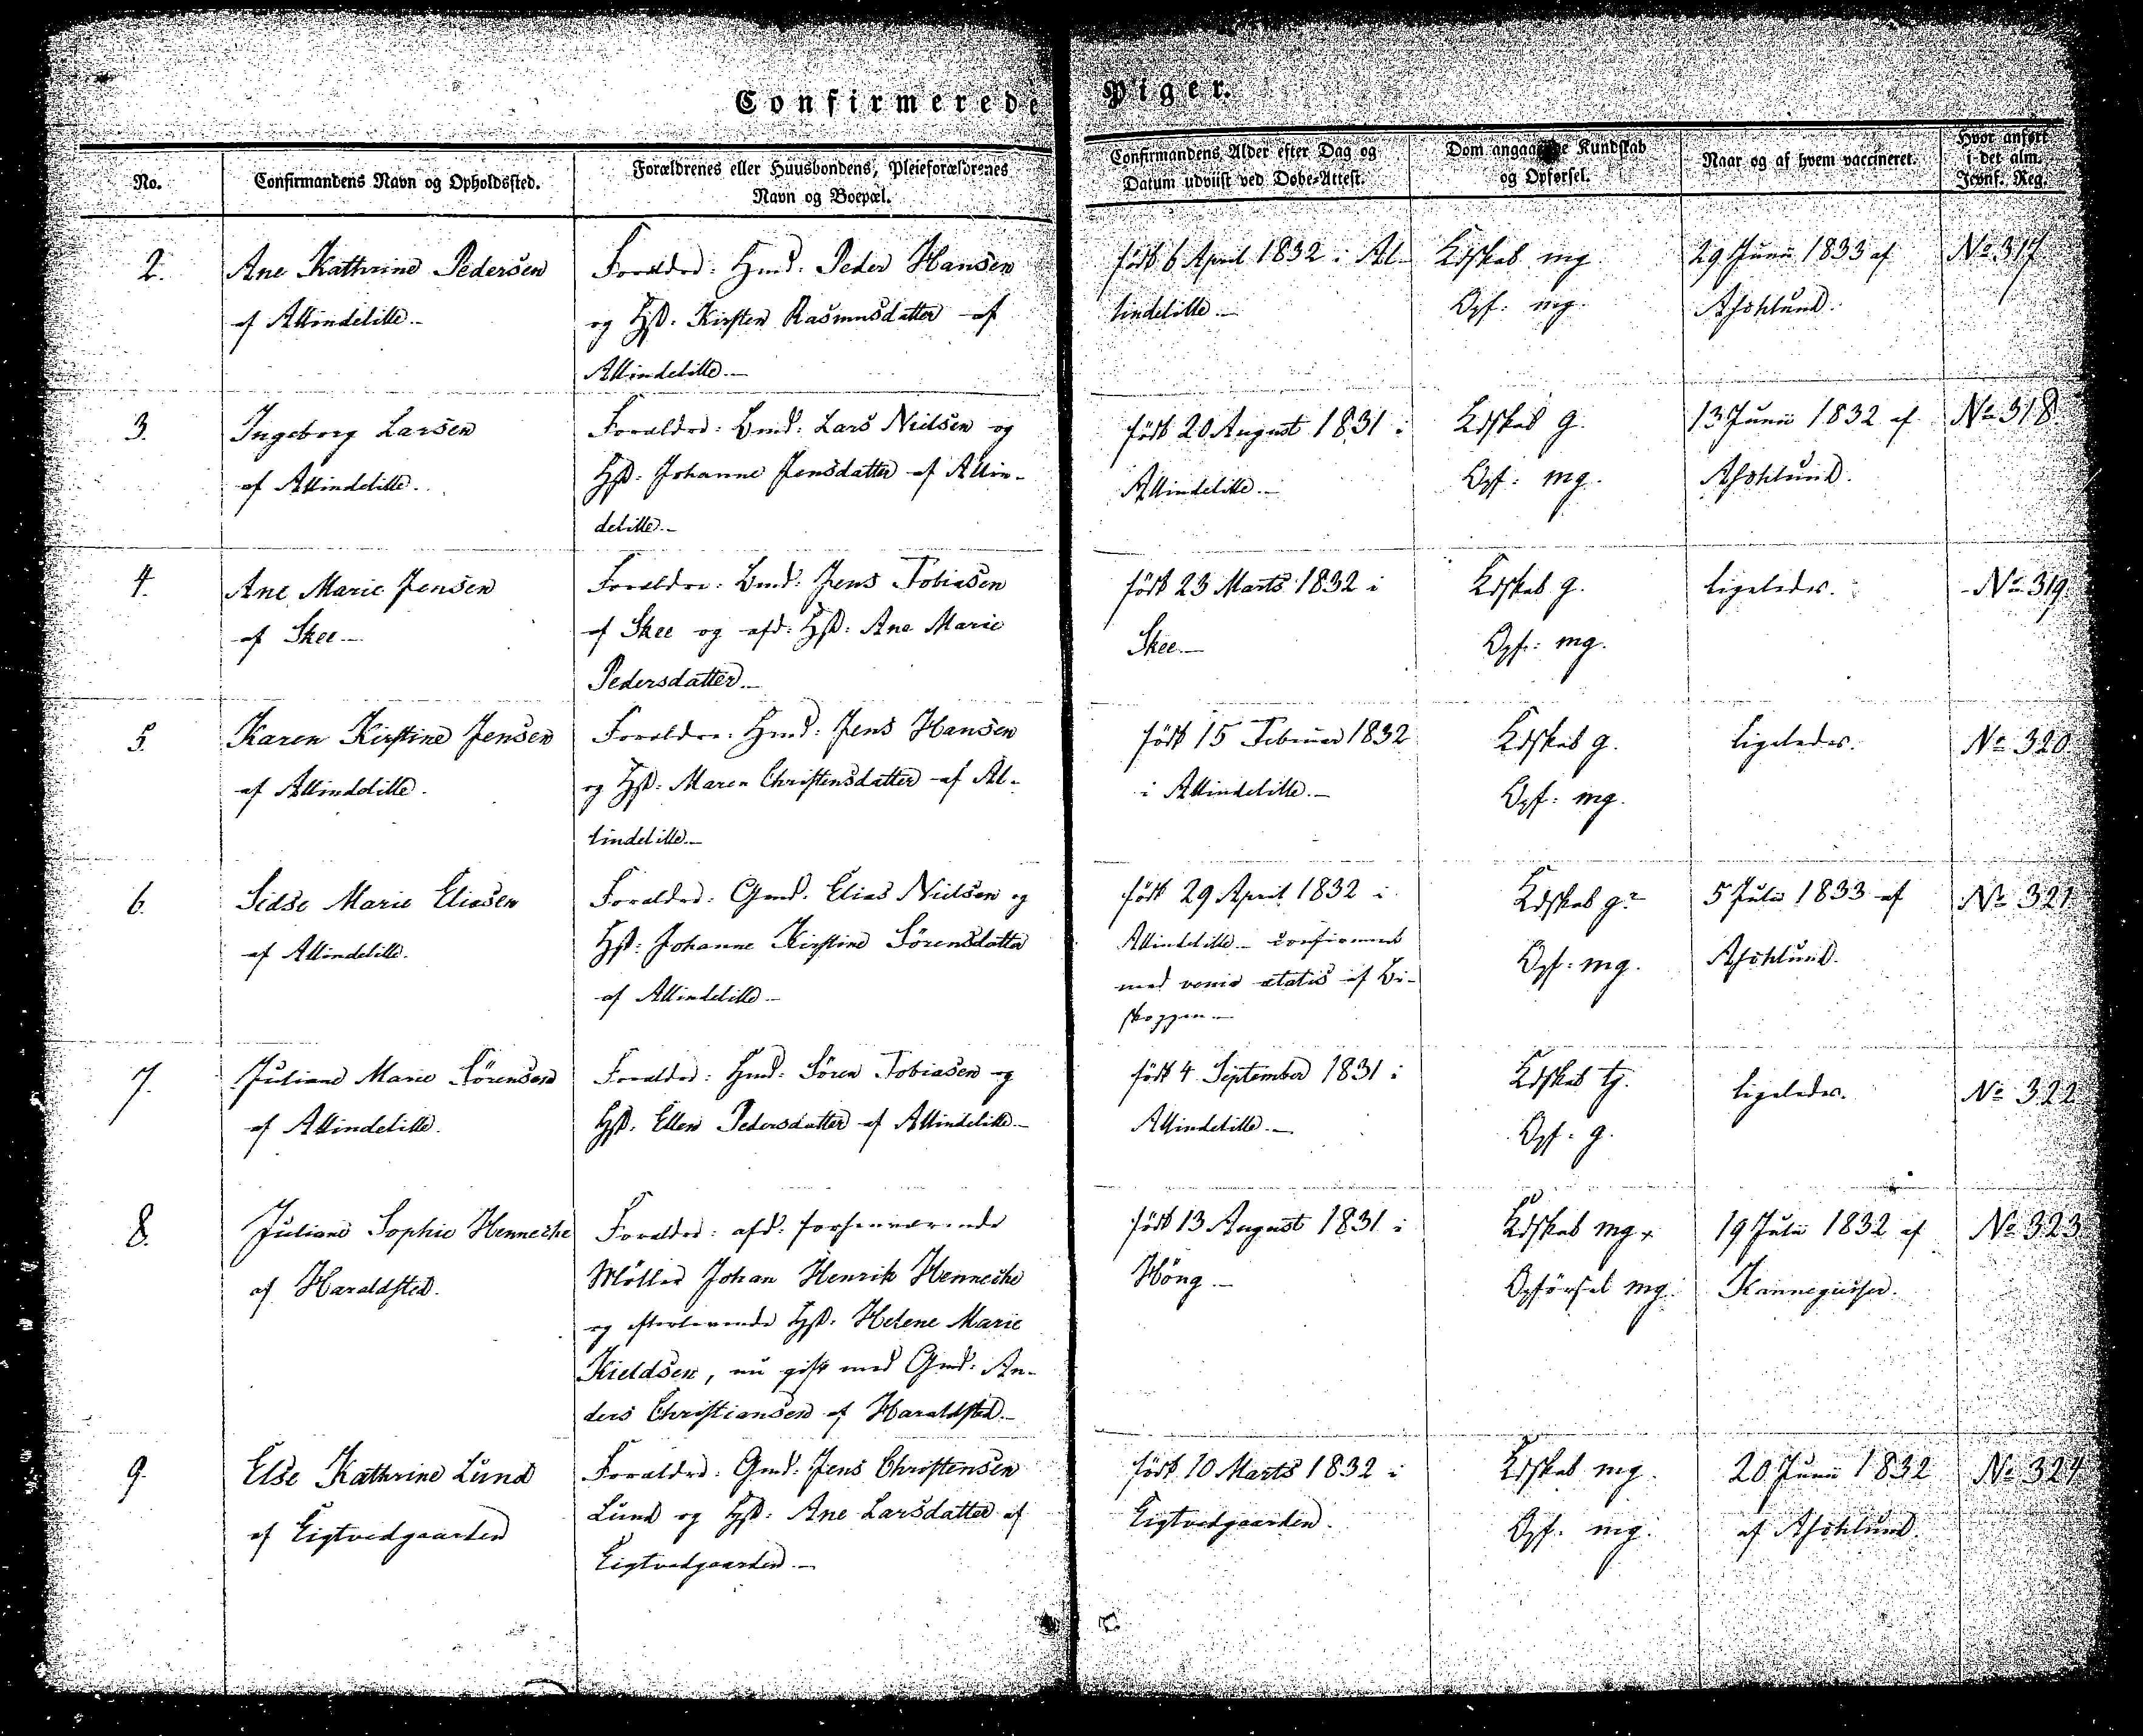 Confirmerede Piger.
No.
Confirmandens Navn og Opholdssted.
Forældrenes eller Huusbondens, Pleieforældrenes
Navn og Boepæl.
Confirmandens Alder efter Dag og
Datum udviist ved Døbe-Attest.
Dom angaaende Kundskab
og Opførsel.
Naar og af hvem vaccineret.
Hvor anført
i det alm.
Jevnf. Reg.
2.
Ane Kathrine Pedersen
af Allindelille.-
Forældre: Hmd. Peder Hansen
og Hst. Kirsten Rasmusdatter af
Allindelille.-
født 6 April 1832 i Al-
lindelille.-
Kdskab mg.
Opf. mg.
29 Junii 1833 af
No 317
3.
Ingeborg Larsen
af Allindelille.
Forældre: Bmd: Lars Nielsen og
Hst: Johanne Jensdatter af Allin-
delille.-
født 20 August 1831 i
Allindelille.-
Kdskab g.
Opf: mg.
13 Junii 1832 af
No 318
4.
Ane Marie Jensen
af Skee.-
Forældre: Bmd: Jens Tobiasen
af Skee og afd: Hst: Ane Marie
Pedersdatter.-
født 23 Marts 1832 i
Skee.-
Kdskab g.
Opf: mg.
ligeledes.
No 319
5.
Karen Kirstine Jensen
af Allindelille.
Forældre: Hmd: Jens Hansen
og Hst: Maren Christensdatter af Al-
lindelille.-
født 15 Februar 1832
i Allindelille.-
Kdskab g.
Opf: mg.
ligeledes.
No 320
6.
Sidse Marie Eliasen
af Allindelille.
Forældre: Gmd. Elias Nielsen og
Hst: Johanne Kirstine Sörensdatter
af Allindelille.-
født 29 April 1832 i
Allindelille.- confirmeret
med venia ætatis af Bi-
skoppen.-
Kdskab g?
Opf: mg.
5 Julii 1833 af
No 321
7.
Juliane Marie Sörensen
af Allindelille.
Forældre: Hmd: Sören Tobiasen og
Hst. Ellen Pedersdatter af Allindelille.-
født 4 September 1831 i
Allindelille.-
Kdskab tg.
Opf: g.
ligeledes.
No 322
8.
Juliane Sophie Henneche
af Haraldsted.
Forældre: afd: forhenværende
Møller Johan Henrik Henneche
og efterlevende Hst. Helene Marie
Kieldsen, nu gift med Gmd: An-
ders Christiansen af Haraldsted.-
født 13 August 1831 i
Höng.-
Kdskab mg
Opförsel mg.
19 Julii 1832 af
Kannegiesser.
No 323
9.
Else Kathrine Lund
af Eigtvedgaarden
Forældre: Gmd: Jens Christensen
Lund og Hst: Ane Larsdatter af
Eigtvedgaarden.-
født 10 Marts 1832 i
Eigtvedgaarden.
Kdskab mg.
Opf. mg.
20 Junii 1832
af
No 324